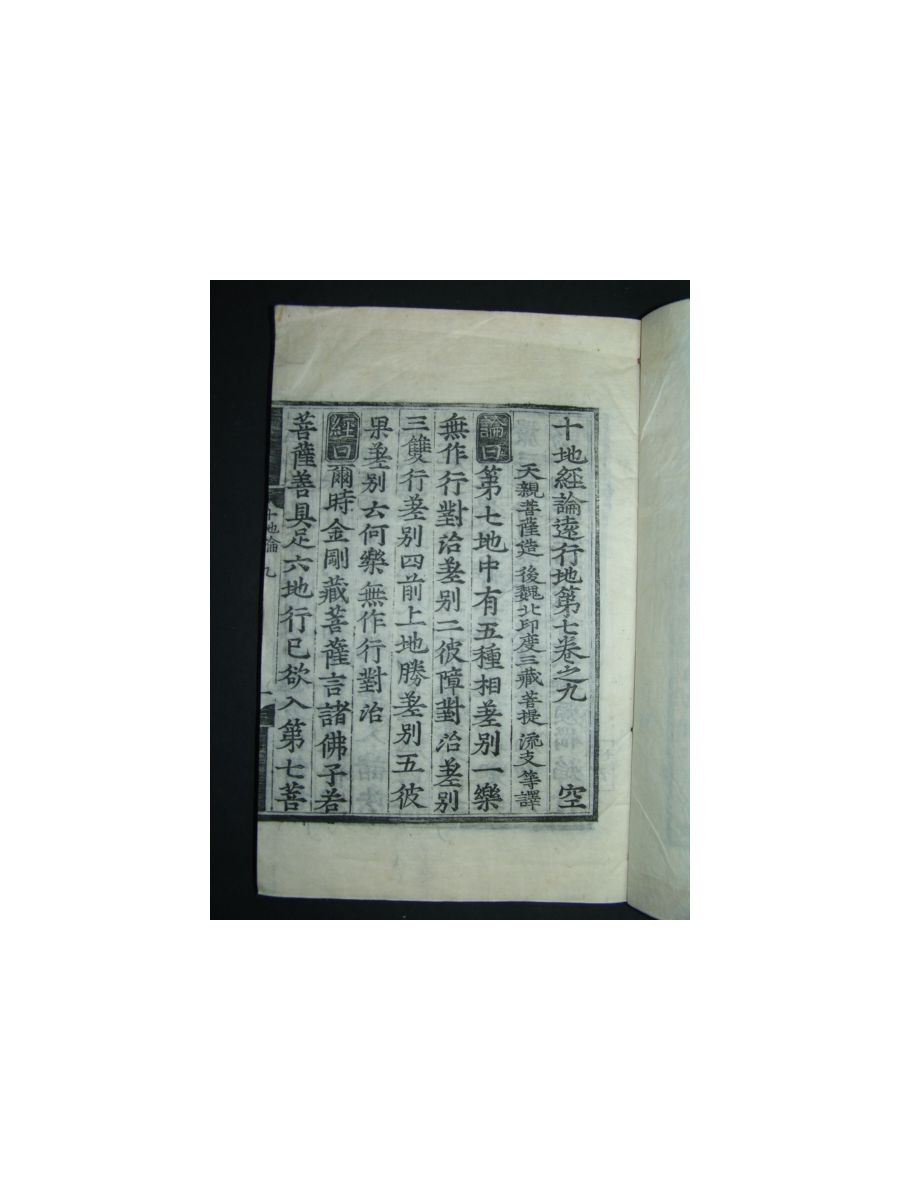 十地經論遠行地第七卷之九 空
天親菩薩造 後魏北印度三藏菩提流支等譯
論曰 第七地中有五種相差別一樂
無作行對治差別二彼障對治差別
三雙行差別四前上地勝差別五彼
果差別云何樂無作行對治
經曰 爾時金剛藏菩薩言諸佛子若
菩薩善具足六地行已欲入第七菩
十地論 九 一